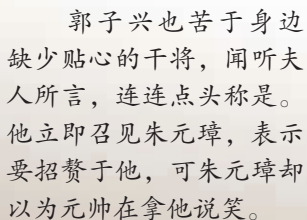 郭子兴也苦于身边
缺少贴心的干将，闻听夫
人所言，连连点头称是。
他立即召见朱元璋，表示
要招赘于他，可朱元璋却
以为元帅在拿他说笑。